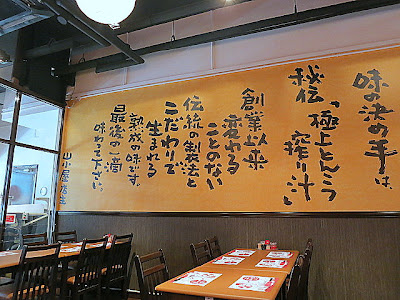 味の決め手は、
秘伝「極上とんこつ
搾り汁」
創業以来
変わる
ことのない
伝統の製法と
こだわりで
生まれる
熟成の味です。
最後の一滴
味わって下さい。
山小屋店主